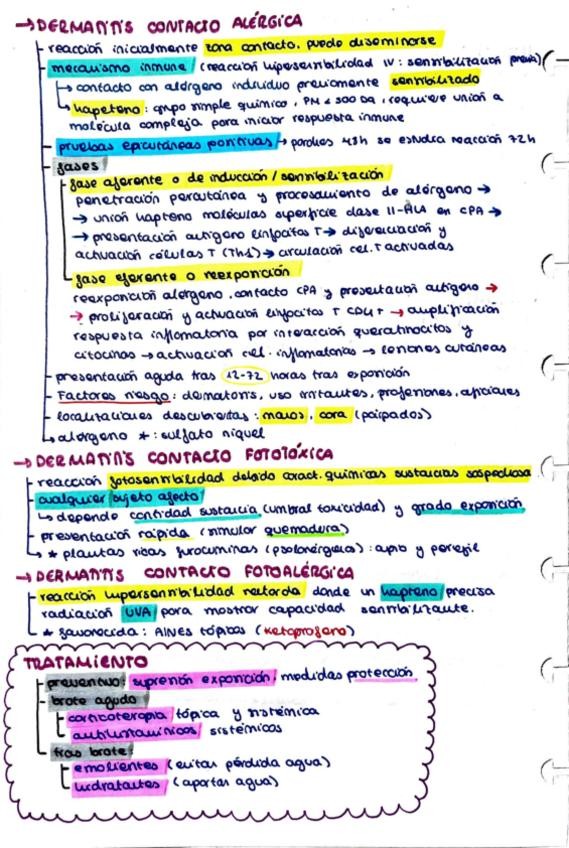 →DERMATITIS CONTACTO ALÉRGICA
reacción inicialmente zona contacto, puede diseminarse
mecanismo inmune (reacción hipersensibilidad IV: sensibilización previa)
↳ contacto con alérgeno individuo previamente sensibilizado
↳ hapeteno: grupo simple químico, PM < 500 Da, requiere unión a
molécula compleja para iniciar respuesta inmune
pruebas epicutáneas positivas → parches 48h se estudia reacción 72h
fases
fase aferente o de inducción/sensibilización
penetración percutánea y procesamiento de alérgeno →
→ unión hapteno moléculas superficie clase II-HLA en CPA →
→ presentación antígeno linfocitos T → diferenciación y
activación células T (Th1) → circulación cel. T activadas
fase eferente o reexposición
reexposición alérgeno, contacto CPA y presentación antígeno →
→ proliferación y activación linfocitos T CD4+ → amplificación
respuesta inflamatoria por interacción queratinocitos y
citocinas → activación cel. inflamatorias → lesiones cutáneas
presentación aguda tras 12-72 horas tras exposición
Factores riesgo: dermatosis, uso irritantes, profesiones, aficiones
localizaciones descubiertas: manos, cara (párpados)
↳ alérgeno *: sulfato níquel
→DERMATITIS CONTACTO FOTOTÓXICA
reacción fotosensibilidad debido caract. químicas sustancias sospechosa
cualquier sujeto afecto
↳ depende cantidad sustancia (umbral toxicidad) y grado exposición
presentación rápida (simular quemadura)
* plantas ricas furocuminas (psolarégela): apio y perejil
→DERMATITIS CONTACTO FOTOALÉRGICA
reacción hipersensibilidad retarda donde un hapteno precisa
radiación UVA para mostrar capacidad sensibilizante.
* favorecida: AINEs tópicos (ketoprofeno)
TRATAMIENTO
preventivo: supresión exposición, medidas protección
brote agudo
corticoterapia tópica y sistémica
antihistamínicos sistémicos
tras brote:
emolientes (evitar pérdida agua)
hidratantes (aportar agua)